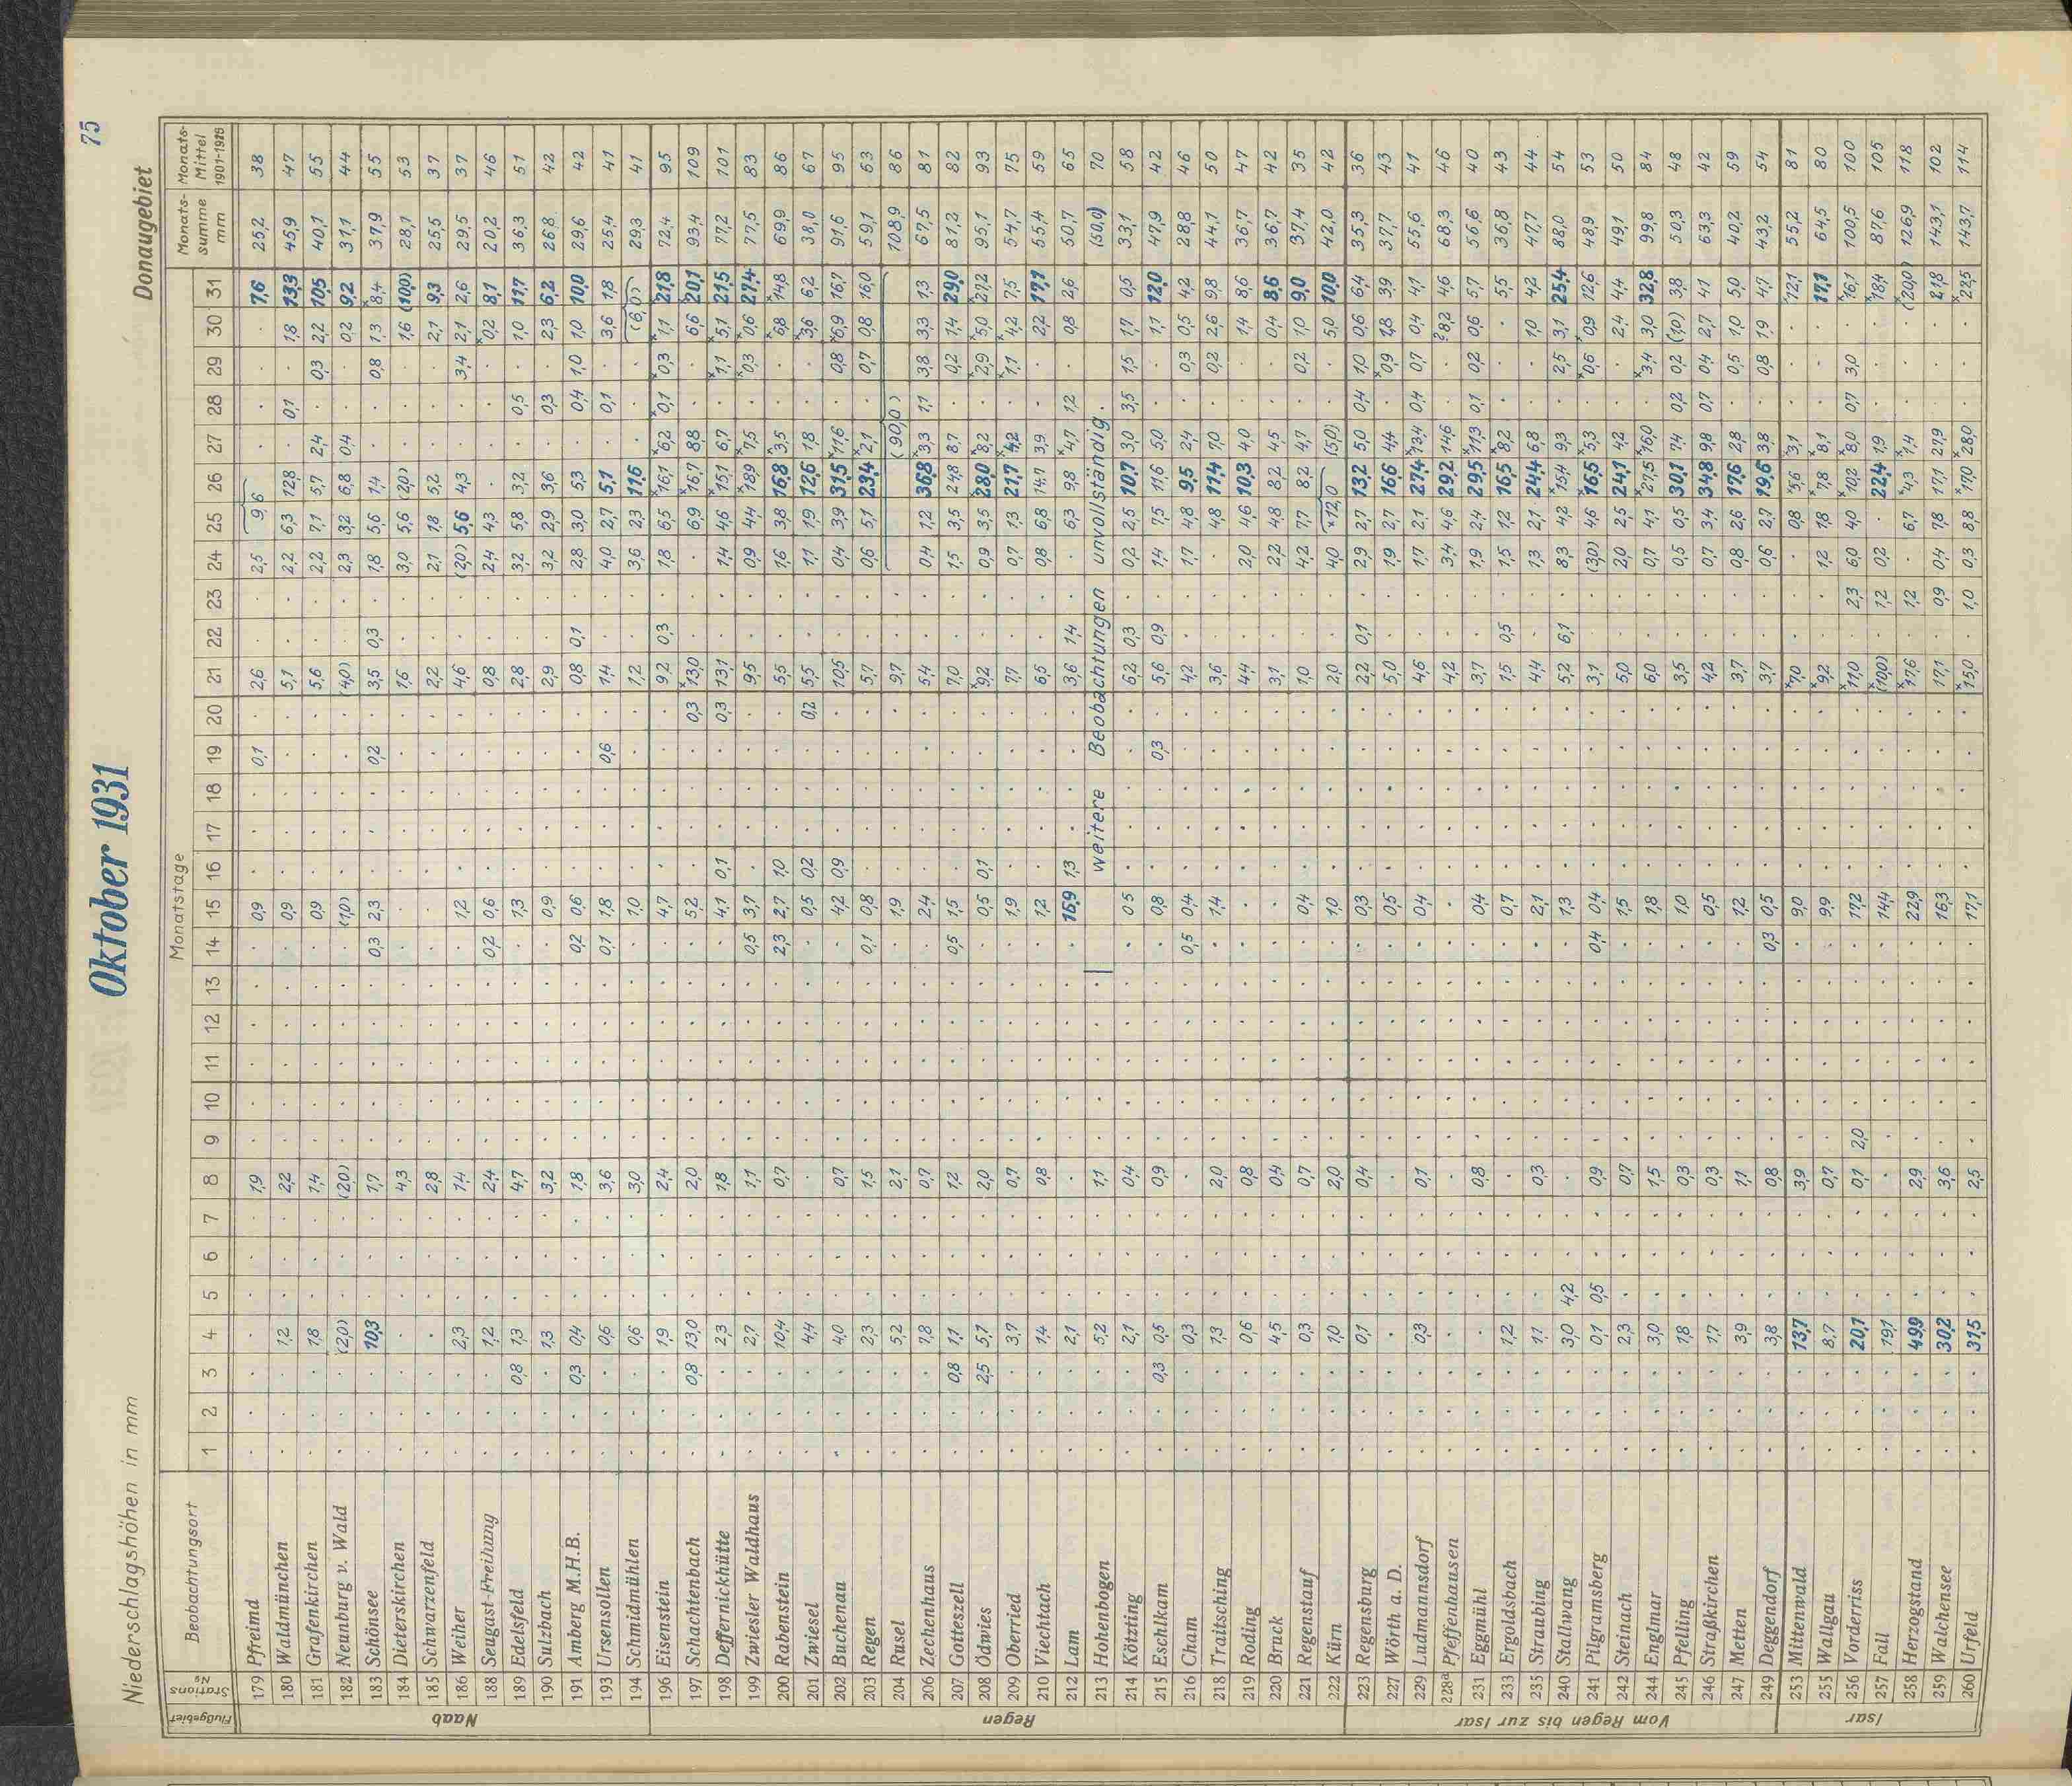 75
Oktober 1931
Niederschlagshöhen in mm
Donaugebiet
Flußgebiet Stations Nº Beobachtungsort Monatstage Monats-summe mm Monats-Mittel 1901-1925
1 2 3 4 5 6 7 8 9 10 11 12 13 14 15 16 17 18 19 20 21 22 23 24 25 26 27 28 29 30 31
Naab
179 Pfreimd . . . . . . . 1,9 . . . . . . 0,9 . . . 0,1 . 2,6 . . 2,5 9,6 . . . . 7,6 25,2 38
180 Waldmünchen . . . 1,2 . . . 2,2 . . . . . . 0,9 . . . . . 5,1 . . 2,2 6,3 12,8 . 0,1 . 1,8 13,3 45,9 47
181 Grafenkirchen . . . 1,8 . . . 1,4 . . . . . . 0,9 . . . . . 5,6 . . 2,2 7,1 5,7 2,4 . 0,3 2,2 10,5 40,1 55
182 Neunburg v. Wald . . . (2,0) . . . (2,0) . . . . . . (1,0) . . . . . (4,0) . . 2,3 3,2 6,8 0,4 . . 0,2 9,2 31,1 44
183 Schönsee . . . 10,3 . . . 1,7 . . . . . 0,3 2,3 . . . 0,2 . 3,5 0,3 . 1,8 5,6 1,4 . . 0,8 1,3 ×8,4 37,9 55
184 Dieterskirchen . . . . . . . 4,3 . . . . . . . . . . . . 1,6 . . 3,0 5,6 (2,0) . . . 1,6 (10,0) 28,1 53
185 Schwarzenfeld . . . . . . . 2,8 . . . . . . . . . . . . 2,2 . . 2,1 1,8 5,2 . . . 2,1 9,3 25,5 37
186 Weiher . . . 2,3 . . . 1,4 . . . . . . 1,2 . . . . . 4,6 . . (2,0) 5,6 4,3 . . 3,4 2,1 2,6 29,5 37
188 Seugast-Freihung . . . 1,2 . . . 2,4 . . . . . 0,2 0,6 . . . . . 0,8 . . 2,4 4,3 . . . . ×0,2 8,1 20,2 46
189 Edelsfeld . . 0,8 1,3 . . . 4,7 . . . . . . 1,3 . . . . . 2,8 . . 3,2 5,8 3,2 . 0,5 . 1,0 11,7 36,3 51
190 Sulzbach . . . 1,3 . . . 3,2 . . . . . . 0,9 . . . . . 2,9 . . 3,2 2,9 3,6 . 0,3 . 2,3 6,2 26,8 42
191 Amberg M.H.B. . . 0,3 0,4 . . . 1,8 . . . . . 0,2 0,6 . . . . . 0,8 0,1 . 2,8 3,0 5,3 . 0,4 1,0 1,0 10,0 29,6 42
193 Ursensollen . . . 0,6 . . . 3,6 . . . . . 0,1 1,8 . . . 0,6 . 1,4 . . 4,0 2,7 5,1 . 0,1 . 3,6 1,8 25,4 41
194 Schmidmühlen . . . 0,6 . . . 3,0 . . . . . . 1,0 . . . . . 1,2 . . 3,6 2,3 11,6 . . . (6,0) 29,3 41
Regen
196 Eisenstein . . . 1,9 . . . 2,4 . . . . . . 4,7 . . . . . 9,2 0,3 . 1,8 6,5 ×16,1 ×6,2 ×0,1 ×0,3 ×1,1 21,8 72,4 95
197 Schachtenbach . . 0,8 13,0 . . . 2,0 . . . . . . 5,2 . . . . 0,3 ×13,0 . . . 6,9 ×16,7 8,8 . . 6,6 ×20,1 93,4 109
198 Deffernickhütte . . . 2,3 . . . 1,8 . . . . . . 4,1 0,1 . . . 0,3 13,1 . . 1,4 4,6 ×15,1 6,7 . ×1,1 ×5,1 21,5 77,2 101
199 Zwiesler Waldhaus . . . 2,7 . . . 1,1 . . . . . 0,5 3,7 . . . . . 9,5 . . 0,9 4,4 ×18,9 ×7,5 . ×0,3 ×0,6 27,4 77,5 83
200 Rabenstein . . . 10,4 . . . 0,7 . . . . . 2,3 2,7 1,0 . . . . 5,5 . . 1,6 3,8 16,8 ×3,5 . . ×6,8 ×14,8 69,9 86
201 Zwiesel . . . 4,4 . . . . . . . . . . 0,5 0,2 . . . 0,2 5,5 . . 1,1 1,9 12,6 1,8 . . ×3,6 6,2 38,0 67
202 Buchenau . . . 4,0 . . . 0,7 . . . . . . 4,2 0,9 . . . . 10,5 . . 0,4 3,9 31,5 ×11,6 . 0,8 ×6,9 16,7 91,6 95
203 Regen . . . 2,3 . . . 1,5 . . . . . 0,1 0,8 . . . . . 5,7 . . 0,6 5,1 23,4 ×2,1 . 0,7 0,8 16,0 59,1 63
204 Rusel . . . 5,2 . . . 2,1 . . . . . . 1,9 . . . . . 9,7 . . (90,0) 108,9 86
206 Zechenhaus . . . 1,8 . . . 0,7 . . . . . . 2,4 . . . . . 5,4 . . 0,4 1,2 36,8 ×3,3 1,1 3,8 3,3 1,3 67,5 81
207 Gotteszell . . 0,8 1,1 . . . 1,2 . . . . . 0,5 1,5 . . . . . 7,0 . . 1,5 3,5 24,8 8,7 . 0,2 1,4 29,0 81,2 82
208 Ödwies . . 2,5 5,1 . . . 2,0 . . . . . . 0,5 0,1 . . . . ×9,2 . . 0,9 3,5 28,0 ×8,2 . ×2,9 ×5,0 ×27,2 95,1 93
209 Oberried . . . 3,7 . . . 0,7 . . . . . . 1,9 . . . . . 7,7 . . 0,7 1,3 21,7 ×4,2 . ×1,1 ×4,2 7,5 54,7 75
210 Viechtach . . . 1,4 . . . 0,8 . . . . . . 1,2 . . . . . 6,5 . . 0,8 6,8 14,7 3,9 . . 2,2 17,1 55,4 59
212 Lam . . . 2,1 . . . . . . . . . . 16,9 1,3 . . . . 3,6 1,4 . . 6,3 9,8 ×4,7 1,2 . 0,8 2,6 50,7 65
213 Hohenbogen . . . 5,2 . . . 1,1 . . . . . weitere Beobachtungen unvollständig. (50,0) 70
214 Kötzting . . . 2,1 . . . 0,4 . . . . . . 0,5 . . . . . 6,2 0,3 . 0,2 2,5 10,7 3,0 3,5 1,5 1,7 0,5 33,1 58
215 Eschlkam . . 0,3 0,5 . . . 0,9 . . . . . . 0,8 . . . 0,3 . 5,6 0,9 . 1,4 7,5 11,6 5,0 . . 1,1 12,0 47,9 42
216 Cham . . . 0,3 . . . . . . . . . 0,5 0,4 . . . . . 4,2 . . 1,7 4,8 9,5 2,4 . 0,3 0,5 4,2 28,8 46
218 Traitsching . . . 1,3 . . . 2,0 . . . . . . 1,4 . . . . . 3,6 . . . 4,8 11,4 7,0 . 0,2 2,6 9,8 44,1 50
219 Roding . . . 0,6 . . . 0,8 . . . . . . . . . . . . 4,4 . . 2,0 4,6 10,3 4,0 . . 1,4 8,6 36,7 47
220 Bruck . . . 4,5 . . . 0,4 . . . . . . . . . . . . 3,1 . . 2,2 4,8 8,2 4,5 . . 0,4 8,6 36,7 42
221 Regenstauf . . . 0,3 . . . 0,7 . . . . . . 0,4 . . . . . 1,0 . . 4,2 7,7 8,2 4,7 . 0,2 1,0 9,0 37,4 35
222 Kürn . . . 1,0 . . . 2,0 . . . . . . 1,0 . . . . . 2,0 . . 4,0 ×12,0 (5,0) . . 5,0 10,0 42,0 42
Vom Regen bis zur Isar
223 Regensburg . . . 0,1 . . . 0,4 . . . . . . 0,3 . . . . . 2,2 0,1 . 2,9 2,7 13,2 5,0 0,4 1,0 0,6 6,4 35,3 36
227 Wörth a. D. . . . . . . . . . . . . . . 0,5 . . . . . 5,0 . . 1,9 2,7 16,6 4,4 . ×0,9 1,8 3,9 37,7 43
229 Ludmannsdorf . . . 0,3 . . . 0,1 . . . . . . 0,4 . . . . . 4,6 . . 1,7 2,1 27,4 ×13,4 0,4 0,7 0,4 4,1 55,6 41
228a Pfeffenhausen . . . . . . . . . . . . . . . . . . . . 4,2 . . 3,4 4,6 29,2 14,6 . . ?8,2 4,6 68,3 46
231 Eggmühl . . . . . . . 0,8 . . . . . . 0,4 . . . . . 3,7 . . 1,9 2,4 29,5 ×11,3 0,1 0,2 0,6 5,7 56,6 40
233 Ergoldsbach . . . 1,2 . . . . . . . . . . 0,7 . . . . . 1,5 0,5 . 1,5 1,2 16,5 ×8,2 . . . 5,5 36,8 43
235 Straubing . . . 1,1 . . . 0,3 . . . . . . 2,1 . . . . . 4,4 . . 1,3 2,1 24,4 6,8 . . 1,0 4,2 47,7 44
240 Stallwang . . . 3,0 4,2 . . . . . . . . . 1,3 . . . . . 5,2 6,1 . 8,3 4,2 ×15,4 9,3 . 2,5 3,1 25,4 88,0 54
241 Pilgramsberg . . . 0,1 0,5 . . 0,9 . . . . . 0,4 0,4 . . . . . 3,1 . . (3,0) 4,6 ×16,5 ×5,3 . ×0,6 ×0,9 12,6 48,9 53
242 Steinach . . . 2,3 . . . 0,7 . . . . . . 1,5 . . . . . 5,0 . . 2,0 2,5 24,1 4,2 . . 2,4 4,4 49,1 50
244 Englmar . . . 3,0 . . . 1,5 . . . . . . 1,8 . . . . . 6,0 . . 0,7 4,1 ×27,5 ×16,0 . ×3,4 3,0 32,8 99,8 84
245 Pfelling . . . 1,8 . . . 0,3 . . . . . . 1,0 . . . . . 3,5 . . 0,5 0,5 30,1 7,4 0,2 0,2 (1,0) 3,8 50,3 48
246 Straßkirchen . . . 1,7 . . . 0,3 . . . . . . 0,5 . . . . . 4,2 . . 0,7 3,4 34,8 9,8 0,7 0,4 2,7 4,1 63,3 42
247 Metten . . . 3,9 . . . 1,1 . . . . . . 1,2 . . . . . 3,7 . . 0,8 2,6 17,6 2,8 . 0,5 1,0 5,0 40,2 59
249 Deggendorf . . . 3,8 . . . 0,8 . . . . . 0,3 0,5 . . . . . 3,7 . . 0,6 2,7 19,6 3,8 . 0,8 1,9 4,7 43,2 54
Isar
253 Mittenwald . . . 13,7 . . . 3,9 . . . . . . 9,0 . . . . . ×7,0 . . . 0,8 ×5,6 ×3,1 . . . ×12,1 55,2 81
255 Wallgau . . . 8,7 . . . 0,7 . . . . . . 9,9 . . . . . ×9,2 . . 1,2 1,8 ×7,8 ×8,1 . . . 17,1 64,5 80
256 Vorderriss . . . 20,1 . . . 0,1 2,0 . . . . . 17,2 . . . . . ×11,0 . 2,3 6,0 4,0 ×10,2 ×8,0 0,7 3,0 . ×16,1 100,5 100
257 Fall . . . 19,1 . . . . . . . . . . 14,4 . . . . . ×(10,0) . 1,2 0,2 . 22,4 1,9 . . . ×18,4 87,6 105
258 Herzogstand . . . 49,9 . . . 2,9 . . . . . . 22,9 . . . . . ×17,6 . 1,2 . 6,7 ×4,3 ×1,4 . . . (20,0) 126,9 118
259 Walchensee . . . 30,2 . . . 3,6 . . . . . . 16,3 . . . . . 17,1 . 0,9 0,4 7,8 17,1 27,9 . . . 21,8 143,1 102
260 Urfeld . . . 31,5 . . . 2,5 . . . . . . 17,1 . . . . . ×15,0 . 1,0 0,3 8,8 ×17,0 ×28,0 . . . ×22,5 143,7 114